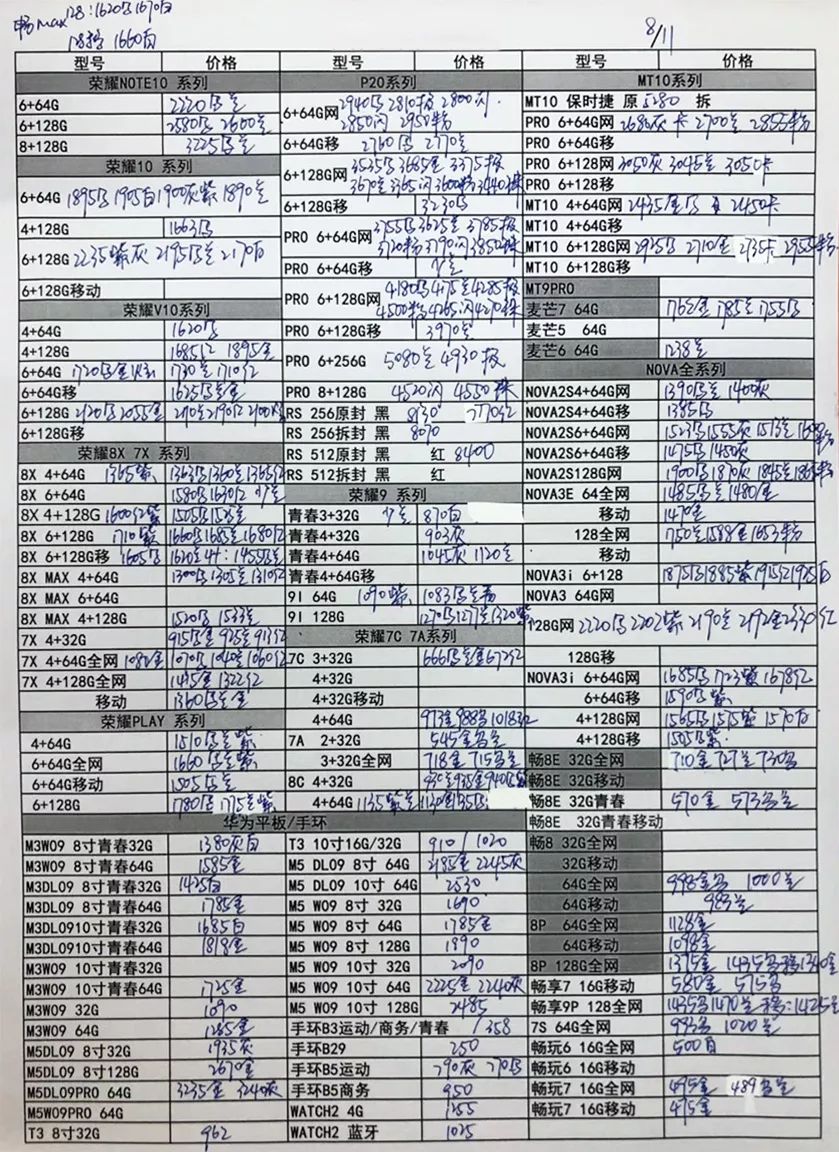 畅max 128:1620乌1670白
128移 1660白
8/11
型号 价格
荣耀NOTE10 系列
6+64G 2220乌兰
6+128G 2580乌 2600兰
8+128G 3225乌兰
荣耀10 系列
6+64G 1895乌 1905白 1900灰紫 1890兰
4+128G 1663乌
6+128G 2235紫灰 2195乌兰 2170白
6+128G移动
荣耀V10系列
4+64G 1620乌
4+128G 1685红 1895金
6+64G 1720乌金 1730兰 1710红
6+64G移 1625乌兰金
6+128G 2120乌 2055金
6+128G移
荣耀8X 7X 系列
8X 4+64G 1365紫 1363乌 1360兰 1365红
8X 6+64G 1580乌 1630红
8X 4+128G 1600红紫 1505乌 1525兰
8X 6+128G 1710紫 1660乌 1685兰 1680红
8X 6+128G移 1605乌 1620
8X MAX 4+64G 1300乌 1305兰 1310红
8X MAX 6+64G
8X MAX 4+128G 1520乌 1533兰
7X 4+32G 915乌金 925兰 913红
7X 4+64G全网 1082金 1070乌 1040兰 1060红
7X 4+128G全网 1322红
移动 1360乌兰金
荣耀PLAY 系列
4+64G 1510乌兰紫
6+64G全网 1660乌兰紫
6+64G移动 1505乌兰
6+128G 1780乌 1775兰紫
型号 价格
P20系列
6+64G网 2940乌 2810极 2800闪
2850闪 2950粉
6+64G移 2760乌 2770兰
6+128G网 3535乌 3685金 3375极
3670兰 3365闪 3600粉 3440珠
6+128G移 3230乌
PRO 6+64G网 3755乌 3625兰 3785极
3720粉 3790闪 3850珠
PRO 6+64G移 少兰
PRO 6+128G网 4180乌 4175兰 4285极
4500粉 4265闪 4270珠
PRO 6+128G移 3970兰
PRO 6+256G 5080兰 4930极
PRO 8+128G 4520闪 4550珠
RS 256原封 黑 8130
RS 256拆封 黑 8070
RS 512原封 黑 红 8400
RS 512拆封 黑 红
荣耀9 系列
青春3+32G 少兰 870白
青春4+32G 903灰
青春4+64G 1045灰 1120兰
青春4+64G移
9I 64G 1090紫 1083乌兰
9I 128G 1270乌 1277兰 1320紫
荣耀7C 7A系列
7C 3+32G 666乌兰金 672红
4+32G
4+32G移动
4+64G 973金 988乌 1018红
7A 2+32G 545金乌兰
3+32G全网 718金 715乌兰
8C 4+32G 930兰 935金 940乌紫
4+64G 1135紫兰 1120金
型号 价格
MT10系列
MT10 保时捷 原 5280 拆
PRO 6+64G网 2680灰 卡 2700兰 2855粉
PRO 6+64G移
PRO 6+128网 3050灰 3045兰 3050卡
PRO 6+128移
MT10 4+64G网 2435金乌 2450卡
MT10 4+64G移
MT10 6+128G网 2925乌 2710金 2735卡 2955粉
MT10 6+128G移
MT9PRO
麦芒7 64G 1762金 1785兰 1755乌
麦芒5 64G
麦芒6 64G 1238兰
NOVA全系列
NOVA2S4+64G网 1390乌兰 1400灰
NOVA2S4+64G移 1385乌
NOVA2S6+64G网 1523乌 1555灰 1513兰
NOVA2S6+64G移 1475乌 1450灰
NOVA2S128G网 1900乌 1870灰 1845兰
NOVA3E 64全网 1485乌兰 1480金
移动 1470金
128全网 1588金 1653粉
移动
NOVA3i 6+128 1875乌 1885紫 1915红 1925白
NOVA3 64G网
128G网 2220乌 2202紫 2190兰 2192金 2330红
128G移
NOVA3i 6+64G网 1685乌 1723紫 1678红
6+64G移 1590紫
4+128G网 1565乌 1575紫 1570白
4+128G移 1505乌紫
畅8E 32G全网 710金 727兰 730乌
畅8E 32G移动
畅8E 32G青春 570金 573乌兰
畅8E 32G青春移动
畅8 32G全网
32G移动
64G全网 998金乌 1000兰
64G移动 983兰
8P 64G全网 1128金
64G移动 1098金
8P 128G全网 1375金 1435乌 移1340金
畅享7 16G移动 580金 575乌
畅享9P 128全网 1435乌 1470兰 移:1425兰
7S 64G全网 993乌 1020兰
畅玩6 16G全网 500白
畅玩6 16G移动
畅玩7 16G全网 495金 489乌兰
畅玩7 16G移动 475金
华为平板/手环
M3W09 8寸青春32G 1380灰白
M3W09 8寸青春64G 1585金
M3DL09 8寸青春32G 1425白
M3DL09 8寸青春64G 1785金
M3DL0910寸青春32G 1685白
M3DL0910寸青春64G 1818金
M3W09 10寸青春32G
M3W09 10寸青春64G 1725金
M3W09 32G 1690
M3W09 64G 1285金
M5DL09 8寸32G 1935灰
M5DL09 8寸128G 2670金
M5DL09PRO 64G 3235金 3240灰
M5W09PRO 64G
T3 8寸32G 962
T3 10寸16G/32G 910 / 1020
M5 DL09 8寸 64G 2185金 2245灰
M5 DL09 10寸 64G 2530
M5 W09 8寸 32G 1690
M5 W09 8寸 64G 1785金
M5 W09 8寸 128G 1990
M5 W09 10寸 32G 2090
M5 W09 10寸 64G 2225金 2240灰
M5 W09 10寸 128G 2485
手环B3运动/商务/青春 / 358
手环B29 250
手环B5运动 790灰 770乌
手环B5商务 950
WATCH2 4G 1255
WATCH2 蓝牙 1025